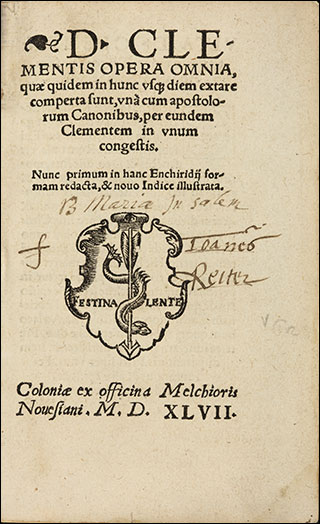 D. CLE-
MENTIS OPERA OMNIA,
quæ quidem in hunc vsq; diem extare
comperta sunt, vnà cum apostolo-
rum Canonibus, per eundem
Clementem in vnum
congestis.
Nunc primum in hanc Enchiridij for-
mam redacta, & nouo Indice illustrata.
B Mariæ In Salem
Ioannes
Reiter
FESTINA LENTE
Coloniæ ex officina Melchioris
Nouesiani. M. D. XLVII.